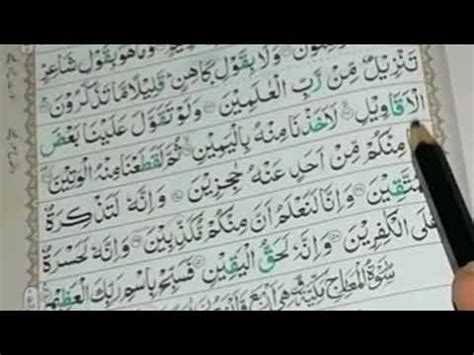 وَّمَا هُوَ بِقَوْلِ شَاعِرٍ
وَلَا بِقَوْلِ كَاهِنٍ ؕ قَلِيْلًا مَّا تَذَكَّرُوْنَ
تَنْزِيْلٌ مِّنْ رَّبِّ الْعٰلَمِيْنَ وَلَوْ تَقَوَّلَ عَلَيْنَا بَعْضَ
الْاَقَاوِيْلِ لَاَخَذْنَا مِنْهُ بِالْيَمِيْنِ ثُمَّ لَقَطَعْنَا مِنْهُ الْوَتِيْنَ
مِنْكُمْ مِّنْ اَحَدٍ عَنْهُ حٰجِزِيْنَ وَاِنَّهٗ لَتَذْكِرَةٌ
وَاِنَّا لَنَعْلَمُ اَنَّ مِنْكُمْ مُّكَذِّبِيْنَ وَاِنَّهٗ لَحَسْرَةٌ
عَلَى الْكٰفِرِيْنَ وَاِنَّهٗ لَحَقُّ الْيَقِيْنِ فَسَبِّحْ بِاسْمِ رَبِّكَ الْعَظِيْمِ
سُوْرَةُ الْمَعَارِجِ مَكِّيَّةٌ وَّهِيَ اَرْبَعٌ